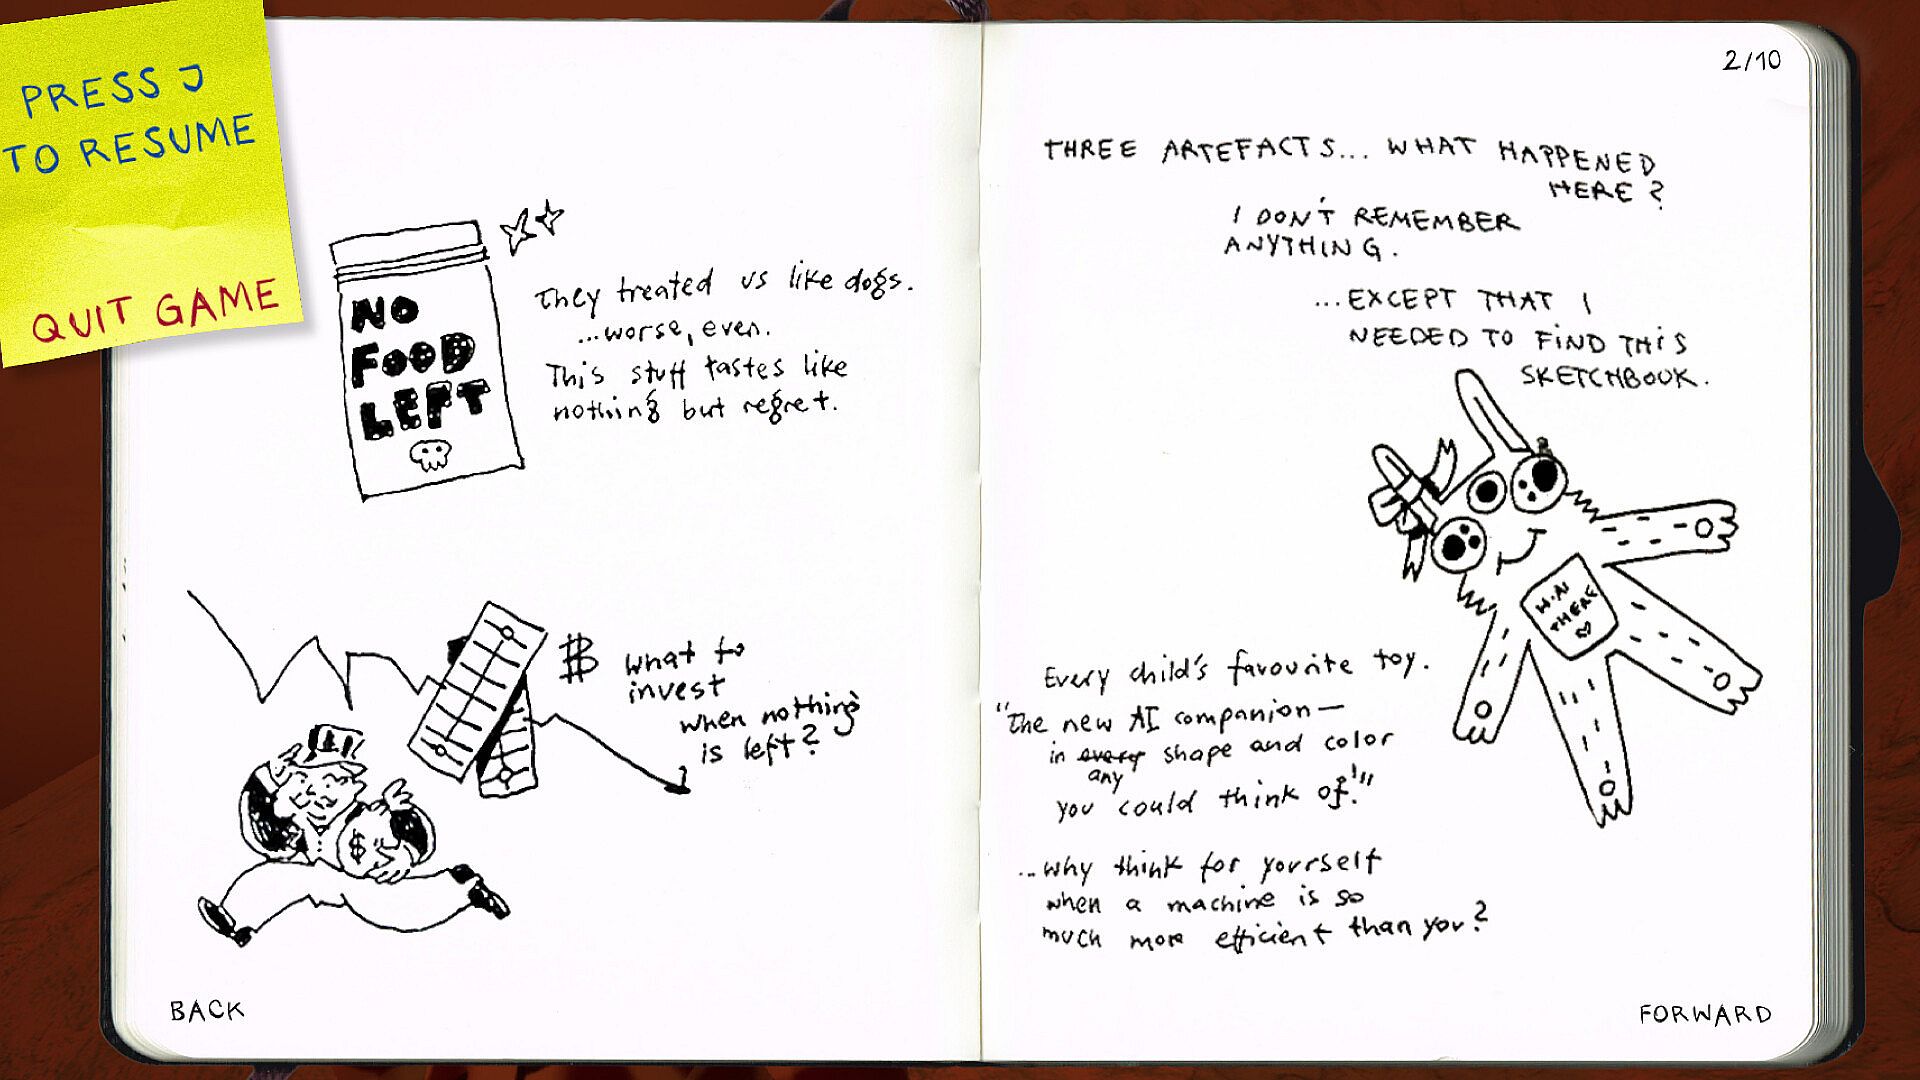 PRESS J
TO RESUME
QUIT GAME
NO
FOOD
LEFT
They treated us like dogs.
...worse, even.
This stuff tastes like
nothing but regret.
$ what to
invest
when nothing
is left?
$
BACK
2/10
THREE ARTEFACTS... WHAT HAPPENED
HERE?
I DON'T REMEMBER
ANYTHING.
...EXCEPT THAT I
NEEDED TO FIND THIS
SKETCHBOOK.
THERE
Every child's favourite toy.
"The new AI companion—
in every shape and color
any
you could think of!"
...why think for yourself
when a machine is so
much more efficient than you?
FORWARD